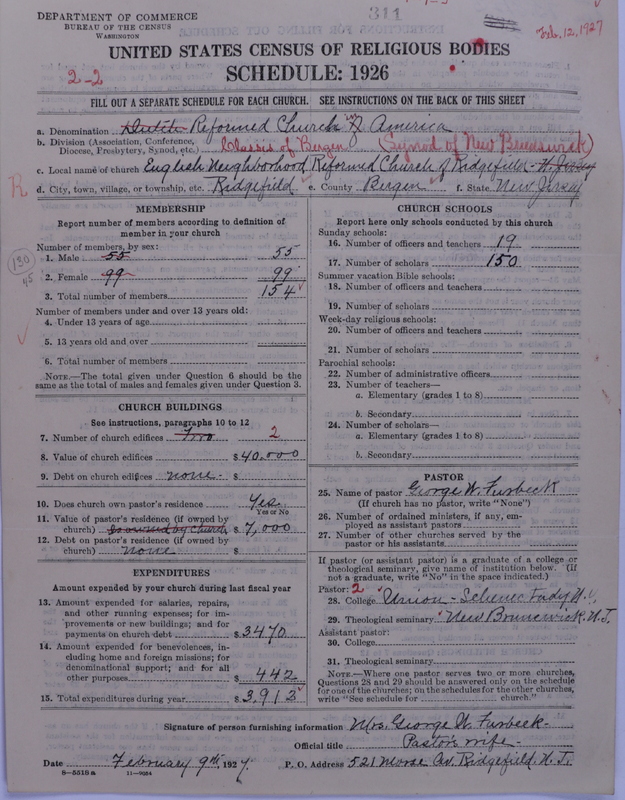 DEPARTMENT OF COMMERCE
BUREAU OF THE CENSUS
WASHINGTON
311
Feb, 12, 1927
UNITED STATES CENSUS OF RELIGIOUS BODIES
2-2
SCHEDULE: 1926
FILL OUT A SEPARATE SCHEDULE FOR EACH CHURCH. SEE INSTRUCTIONS ON THE BACK OF THIS SHEET
a. Denomination Dutch Reformed Church of America
b. Division (Association, Conference, Diocese, Presbytery, Synod, etc.) Classis of Bergen (Synod of New Brunswick)
c. Local name of church English Neighborhood Reformed Church of Ridgefield - N. Jersey
R
d. City, town, village, or township, etc. Ridgefield e. County Bergen f. State New Jersey
MEMBERSHIP
Report number of members according to definition of
member in your church
Number of members, by sex:
1. Male 55 55
130
45
2. Female 99 99
3. Total number of members 154
Number of members under and over 13 years old:
4. Under 13 years of age
5. 13 years old and over
6. Total number of members
NOTE.—The total given under Question 6 should be the
same as the total of males and females given under Question 3.
CHURCH BUILDINGS
See instructions, paragraphs 10 to 12
7. Number of church edifices Two 2
8. Value of church edifices $ 40,000
9. Debt on church edifices none - $
10. Does church own pastor's residence Yes
Yes or No
11. Value of pastor's residence (if owned by
church) is owned by Church $ 7,000
12. Debt on pastor's residence (if owned by
church) none $
EXPENDITURES
Amount expended by your church during last fiscal year
13. Amount expended for salaries, repairs,
and other running expenses; for im-
provements or new buildings; and for
payments on church debt $ 3470
14. Amount expended for benevolences, in-
cluding home and foreign missions; for
denominational support; and for all
other purposes $ 442
15. Total expenditures during year $ 3,912
CHURCH SCHOOLS
Report here only schools conducted by this church
Sunday schools:
16. Number of officers and teachers 19
17. Number of scholars 150
Summer vacation Bible schools:
18. Number of officers and teachers
19. Number of scholars
Week-day religious schools:
20. Number of officers and teachers
21. Number of scholars
Parochial schools:
22. Number of administrative officers
23. Number of teachers—
a. Elementary (grades 1 to 8)
b. Secondary
24. Number of scholars—
a. Elementary (grades 1 to 8)
b. Secondary
PASTOR
25. Name of pastor George W. Furbeck
(If church has no pastor, write "None")
26. Number of ordained ministers, if any, em-
ployed as assistant pastors
27. Number of other churches served by the
pastor or his assistants
If pastor (or assistant pastor) is a graduate of a college or
theological seminary, give name of institution below. (If
not a graduate, write "No" in the space indicated.)
Pastor: 2
28. College Union - Schenectady N.Y.
29. Theological seminary New Brunswick, N.J.
Assistant pastor:
30. College
31. Theological seminary
NOTE.—Where one pastor serves two or more churches,
Questions 28 and 29 should be answered only on the schedule
for one of the churches; on the schedules for the other churches,
write "See schedule for church."
Signature of person furnishing information Mrs. George W. Furbeck -
Official title Pastor's wife -
Date February 9th, 1927. P. O. Address 521 Morse Av. Ridgefield, N. J.
8—5518a 11—9064